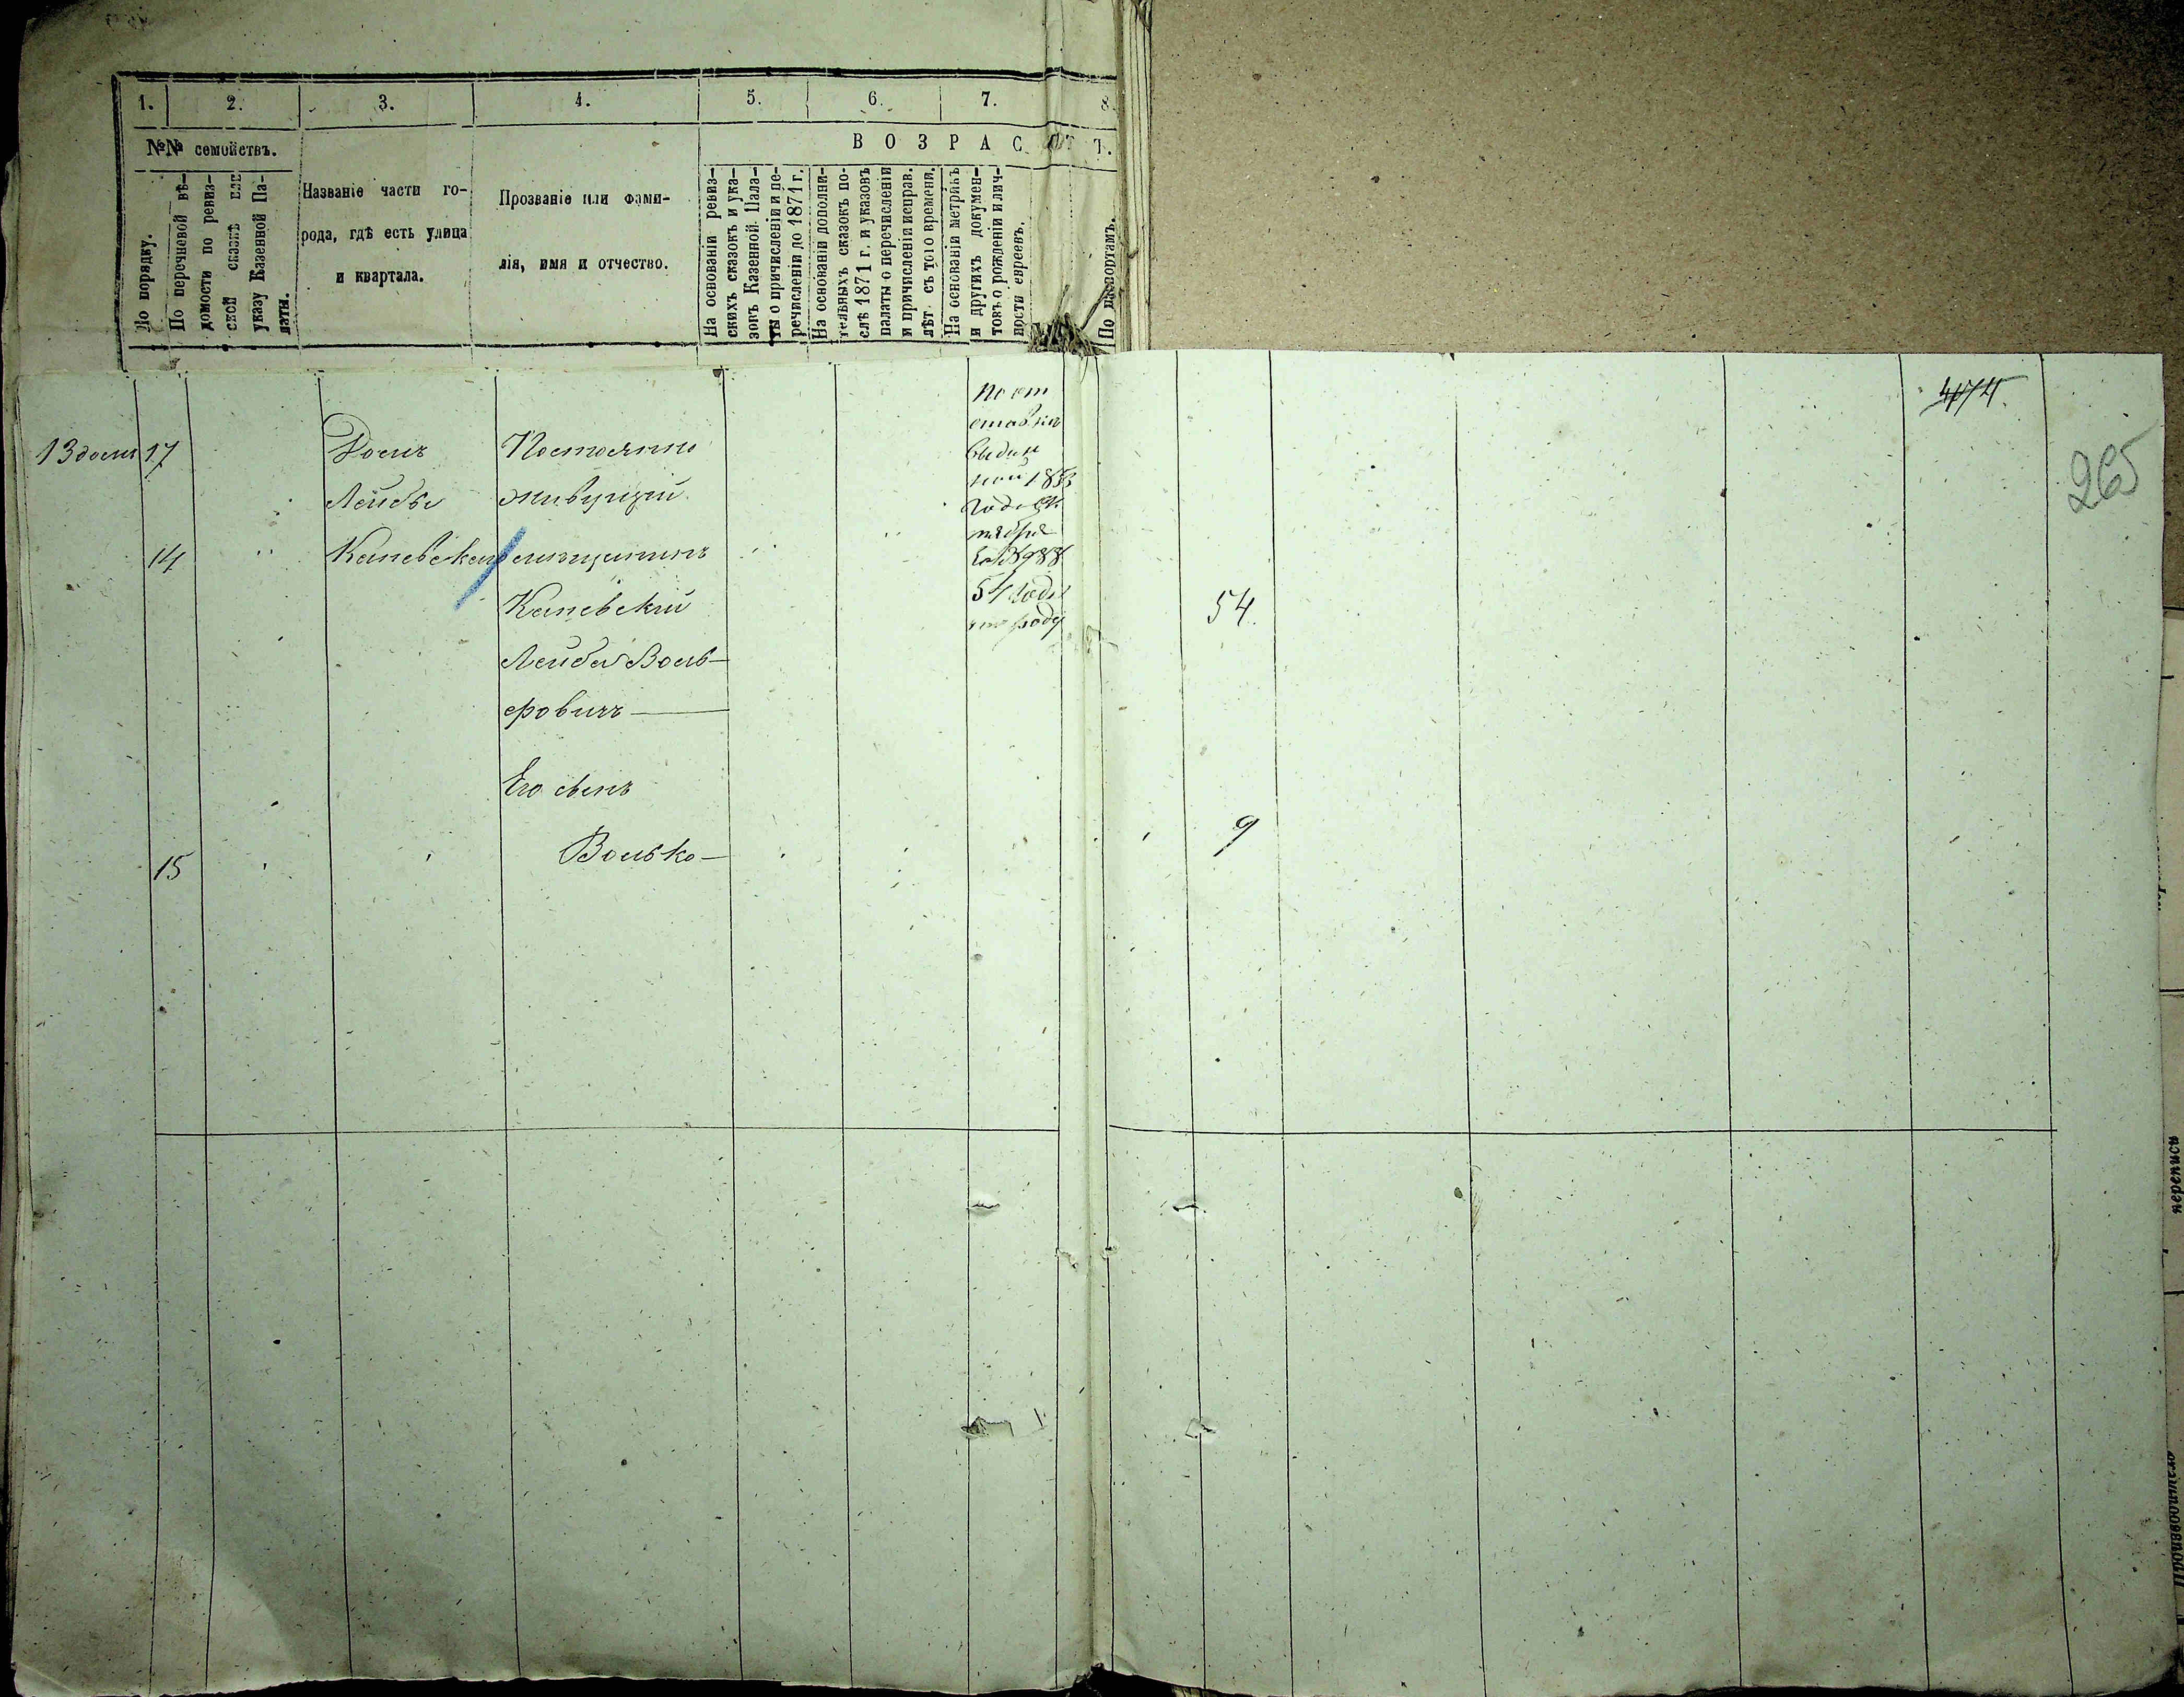 1. 2. 3. 4. 5. 6. 7. 8.
№№ семействъ.
ВОЗРАСТ Т.
По порядку.
По перечневой вѣ-
домости по ревиз-
ской сказкѣ или
указу Казенной Па-
латы.
Названіе части го-
рода, гдѣ есть улица
и квартала.
Прозваніе или фами-
лія, имя и отчество.
На основаніи ревиз-
скихъ сказокъ и ука-
зовъ Казенной Пала-
ты о причисленіи и пе-
речисленіи до 1871 г.
На основаніи дополни-
тельныхъ сказокъ по-
слѣ 1871 г. и указовъ
палаты о перечисленіи
и причисленіи исправ.
лѣт съ того времени.
На основаніи метрикъ
и другихъ докумен-
товъ о рожденіи и лич-
ности евреевъ.
По паспортамъ.
265
13 домъ 17
Домъ
Лейбы
Каневскаго
14
Постоянно
живущій
мѣщанинъ
Каневскій
Лейба Воль-
фовичъ
54
Его сынъ
15 Волько 9
переписи
Производитель